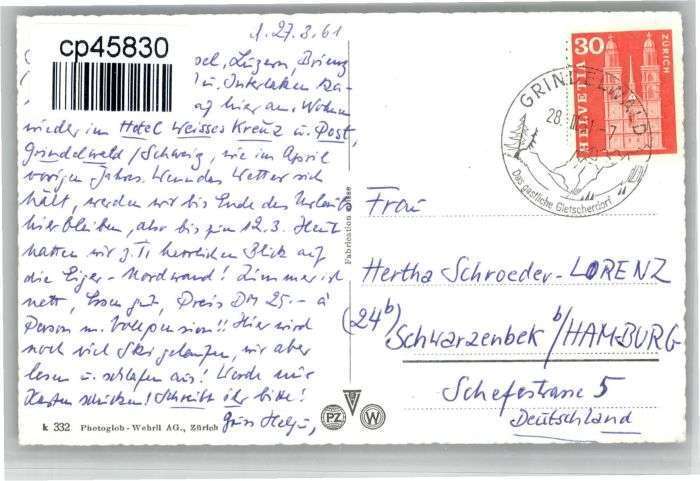 d. 27.2.61
cp45830
Luzern, Brienz
u. Interlaken
hier an. Wohnen
wieder im Hotel Weisses Kreuz u. Post,
Grindelwald/Schweiz, wie im April
vorigen Jahres. Wenn das Wetter sich
hält, werden wir bis Ende des Urlaubs
hierbleiben, also bis zum 12.3. Heute
hatten wir z. Tl herrlichen Blick auf
die Eiger-Nordwand! Zimmer ist
nett, Essen gut, Preis DM 25.- à
Person m. Vollpension!! Hier wird
noch viel Ski gelaufen, wir aber
lesen u. schlafen aus! Werde nur
Karten schicken! Schreibt ihr bitte!
Gruss Helga,
k 332 Photoglob-Wehrli AG., Zürich
Fabrication Suisse
PZ W
30
HELVETIA
ZÜRICH
GRINDELWALD
28. II. 61 - 7
Das gastliche Gletscherdorf
Frau
Hertha Schroeder-LORENZ
(24b)
Schwarzenbek b/HAMBURG
Schefestrasse 5
Deutschland